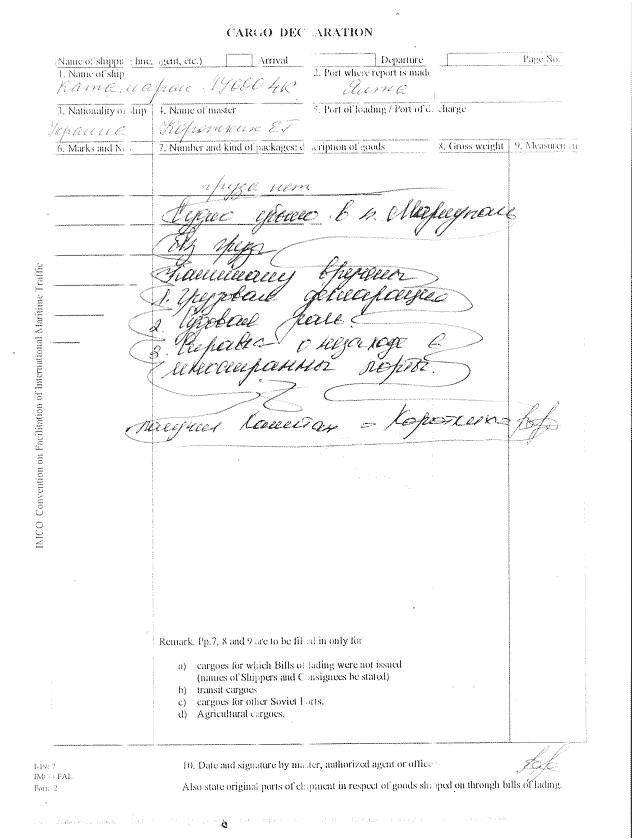 CARGO DEC ARATION
(Name of shippi g line, agent, etc.) Arrival Departure Page No.
1. Name of ship 2. Port where report is made
Катамаран Ялта
3. Nationality of ship 4. Name of master 5. Port of loading / Port of d charge
Украина Короткин ЕГ
6. Marks and N 7. Number and kind of packages: d cription of goods 8. Gross weight 9. Measurem
груза нет
Судно убыло в п. Мариуполь
без груза
Капитану вручены
1. Грузовая декларация
2. Судовая роль.
3. Справка о незаходе в
иностранны порты.
получил Капитан = Короткин =
IMCO Convention on Facilitation of International Maritime Traffic
Remark. Pp.7, 8 and 9 are to be filled in only for
a) cargoes for which Bills of lading were not issued
(names of Shippers and Consignees be stated)
b) transit cargoes
c) cargoes for other Soviet Ports.
d) Agricultural cargoes.
IMCO FAL
Form 2
10. Date and signature by master, authorized agent or officer
Also state original ports of shipment in respect of goods shipped on through bills of lading.